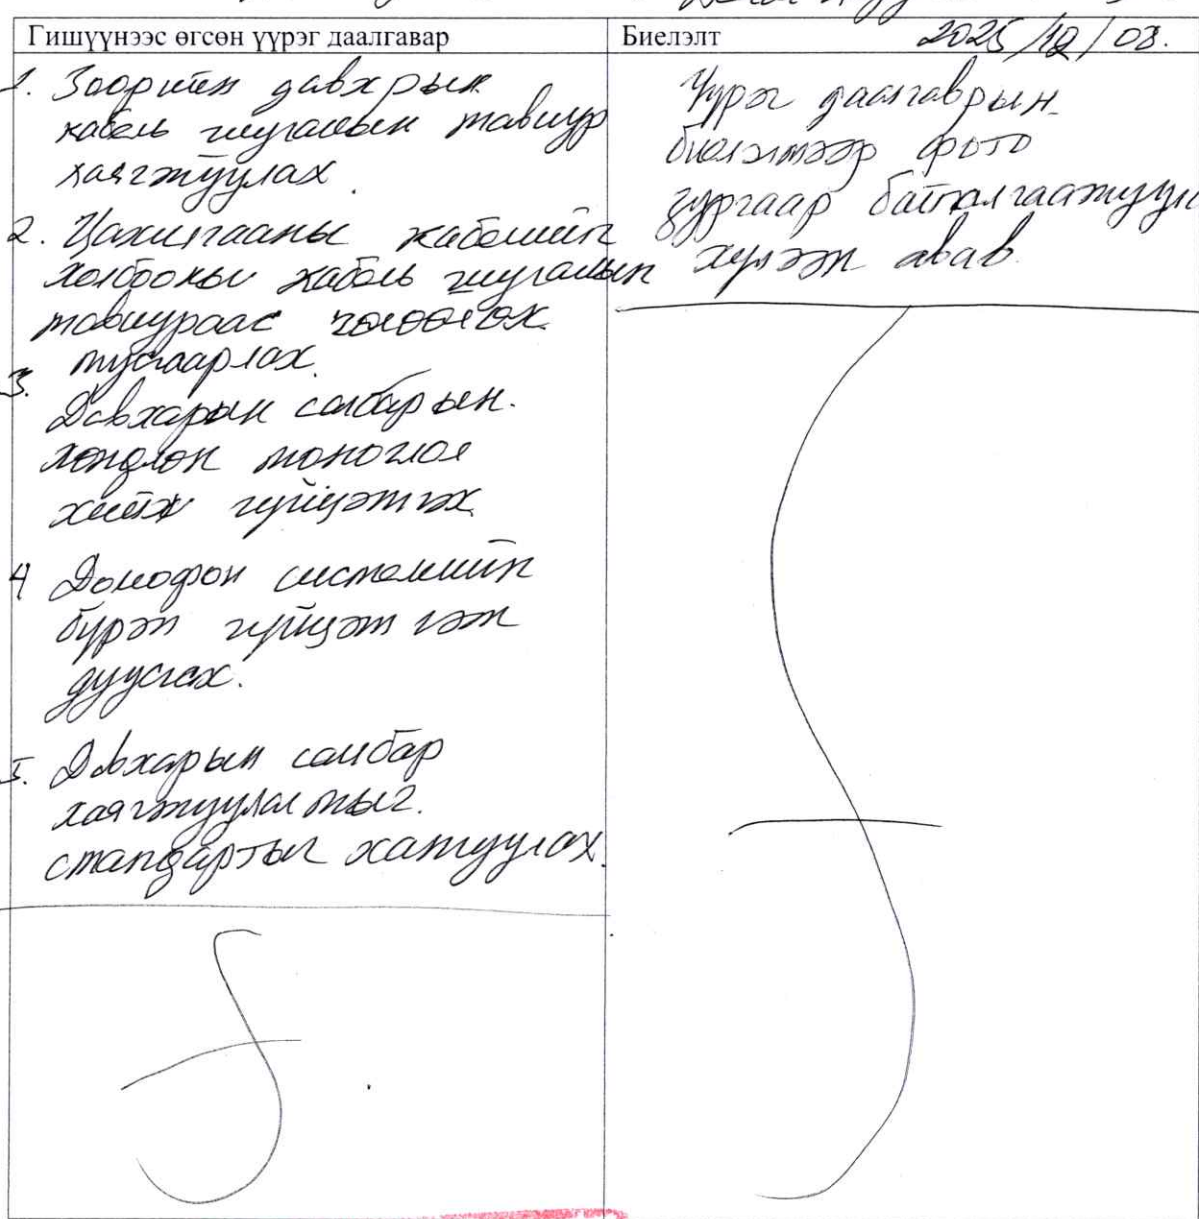 Гишүүнээс өгсөн үүрэг даалгавар
1. Зоорийн давхрын
кабель шугамын тавиур
хаягжуулах.
2. Цахилгааны кабелийн
холбооны кабель шугамын
тавиураас чөлөөлөх
тусгаарлах.
3. Давхарын самбарын.
хөндлөн тоноглол
хийж гүйцэтгэх
4 Домофон системийн
бүрэн гүйцэтгэж
дуусгах.
5. Давхарын самбар
хаягжуулалтыг.
стандартыг хангуулах.
Биелэлт 2025/12/03.
Үүрэг даалгаврын
биелэлтээр фото
зургаар баталгаажуулж
хүлээж авав.